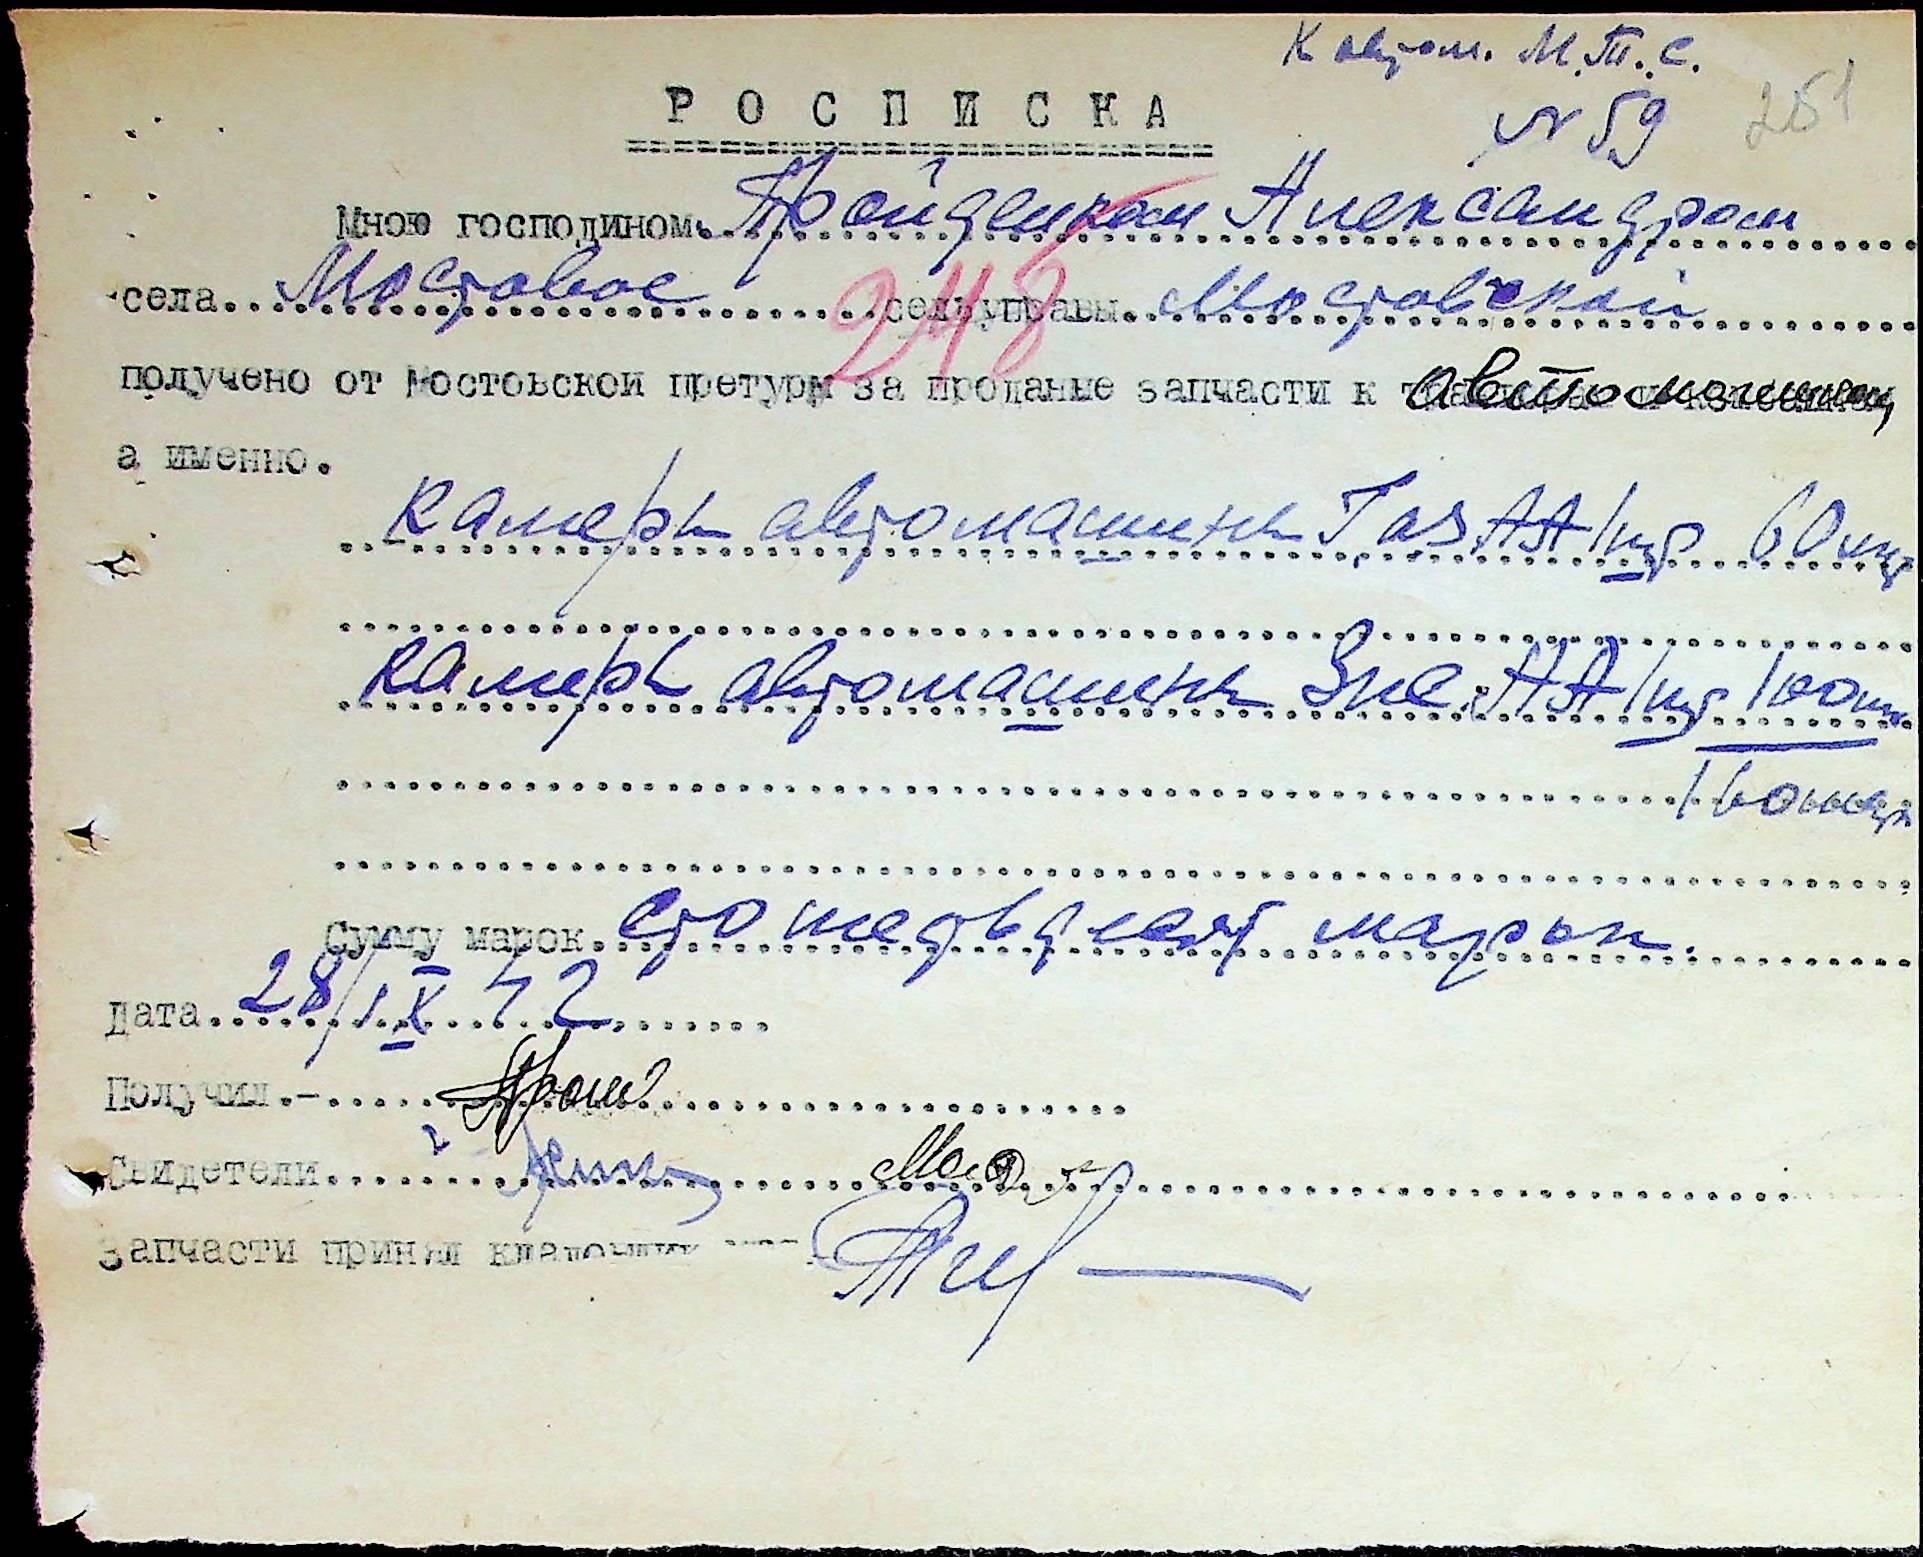 К автом. М.Т.С.
Р О С П И С К А
N 59
251
Мною господином. Пройденком Александром
села Мостовое сельуправы Мостовской
248
получено от Мостовской претуры за проданые запчасти к автомашинам
а именно.
Камеры автомашины Газ АА 1 шт 60 мар
Камеры автомашины Зис АА 1 шт 100 м
160 мар
Сумму марок. сто шестьдесят марок.
Дата 28/IX 42
Получил.-
Свидетели
Запчасти принял кладовщик